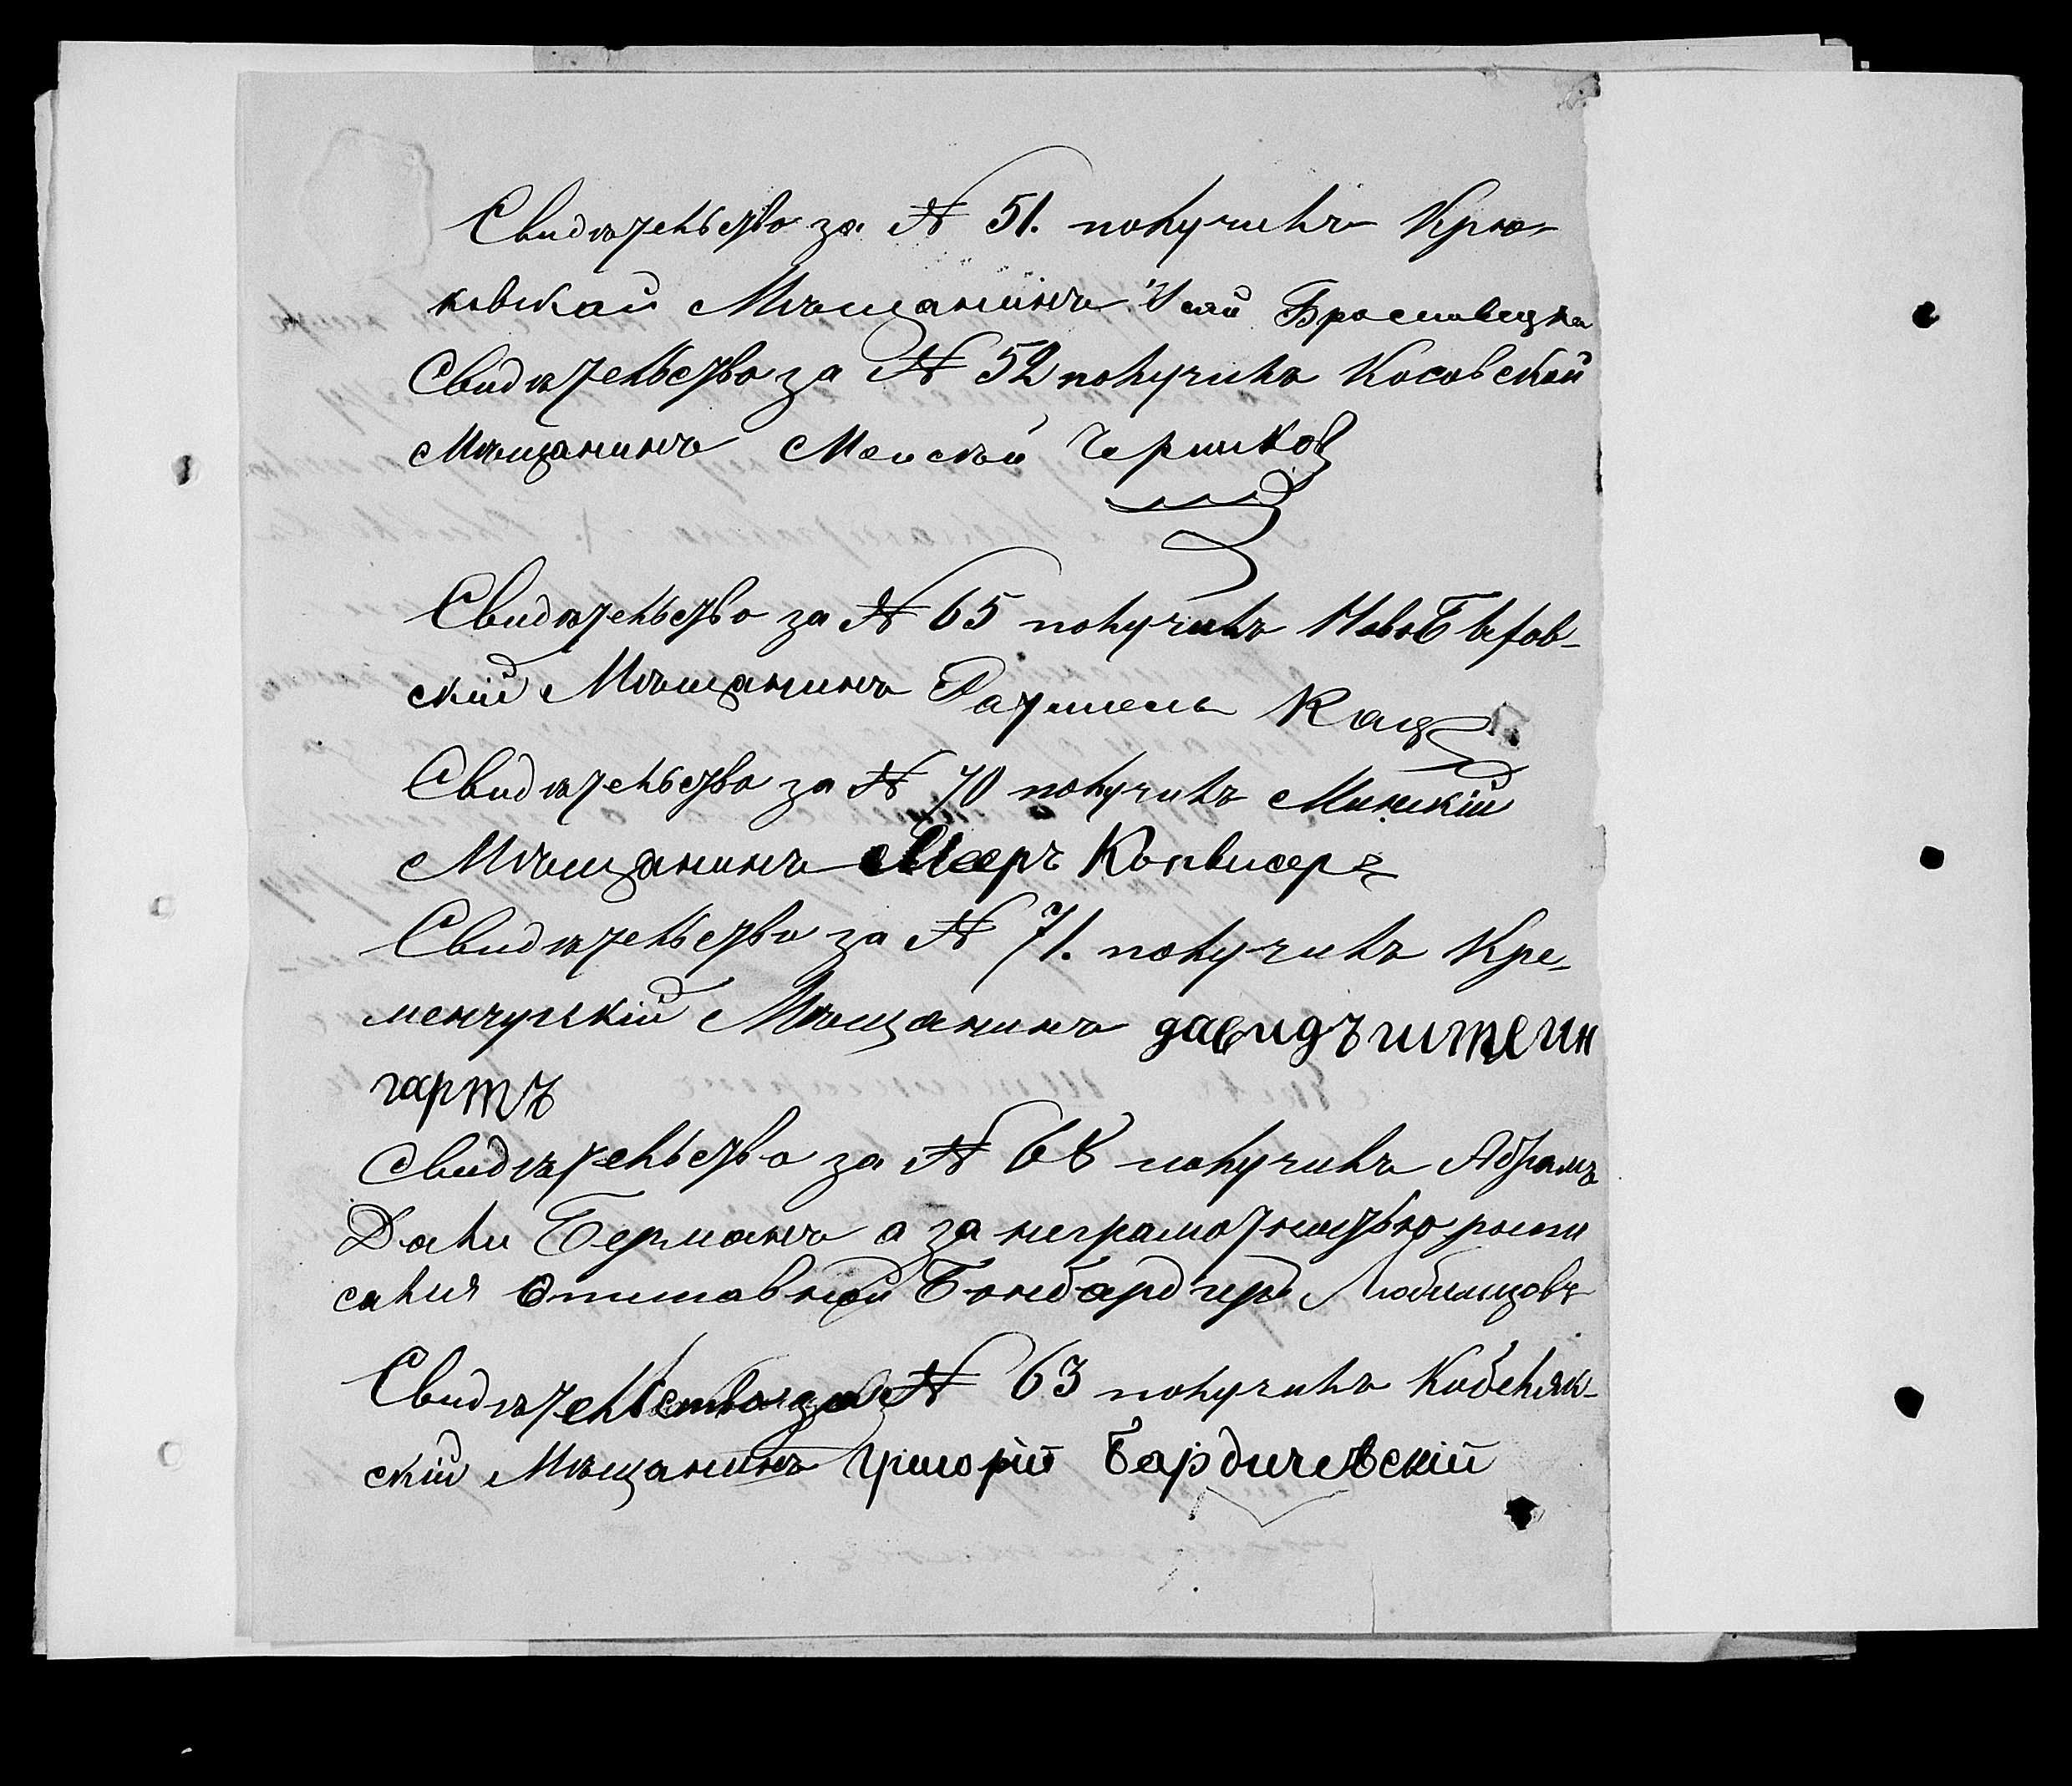 Свидѣтельство за № 51. получилъ Крю-
ковскай Мѣщанинъ Усяй
Свидѣтельство за № 52 получилъ Косовской
Мѣщанинъ Мойсѣй Чершков
Свидѣтельство за № 65 получилъ Ново
скій Мѣщанинъ Кацъ
Свидѣтельство за № 70 получилъ Минскій
Мѣщанинъ Мееръ Конвисеръ
Свидѣтельство за № 71. получилъ Кре-
менчугскій Мѣщанинъ давидъ штеин
гартъ
Свидѣтельство за № 68 получилъ Абрамъ
Дали Берманъ а за неграмотностью роспи
сался Отставной Бонбардиръ Любимцовъ
Свидѣтельство за № 63 получилъ Кобеляк-
скій Мѣщанинъ Григорій Бардичевскій